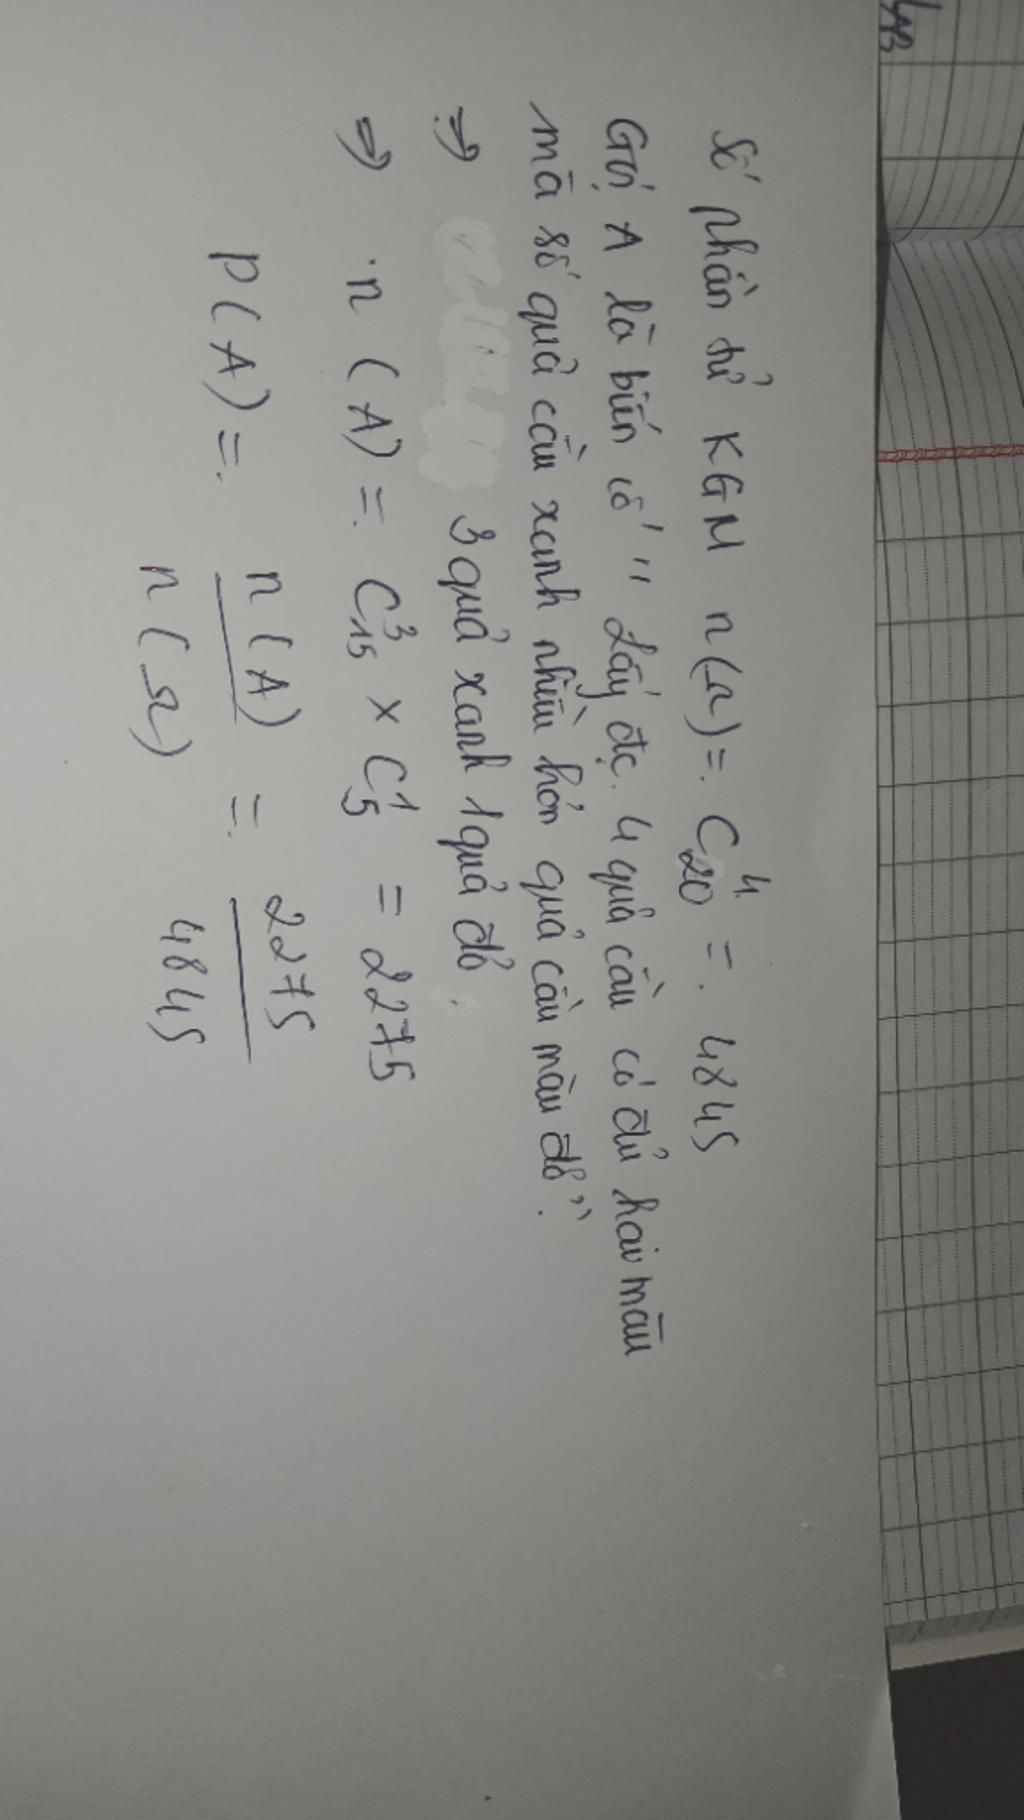 Số phần tử KGM n(Ω) = C₂₀⁴ = 4845
Gọi A là biến cố " Lấy đc 4 quả cầu có đủ hai màu
mà số quả cầu xanh nhiều hơn quả cầu màu đỏ".
⇒ 3 quả xanh 1 quả đỏ.
⇒ n (A) = C₁₅³ × C₅¹ = 2275
P(A) = n(A) / n(Ω) = 2275 / 4845